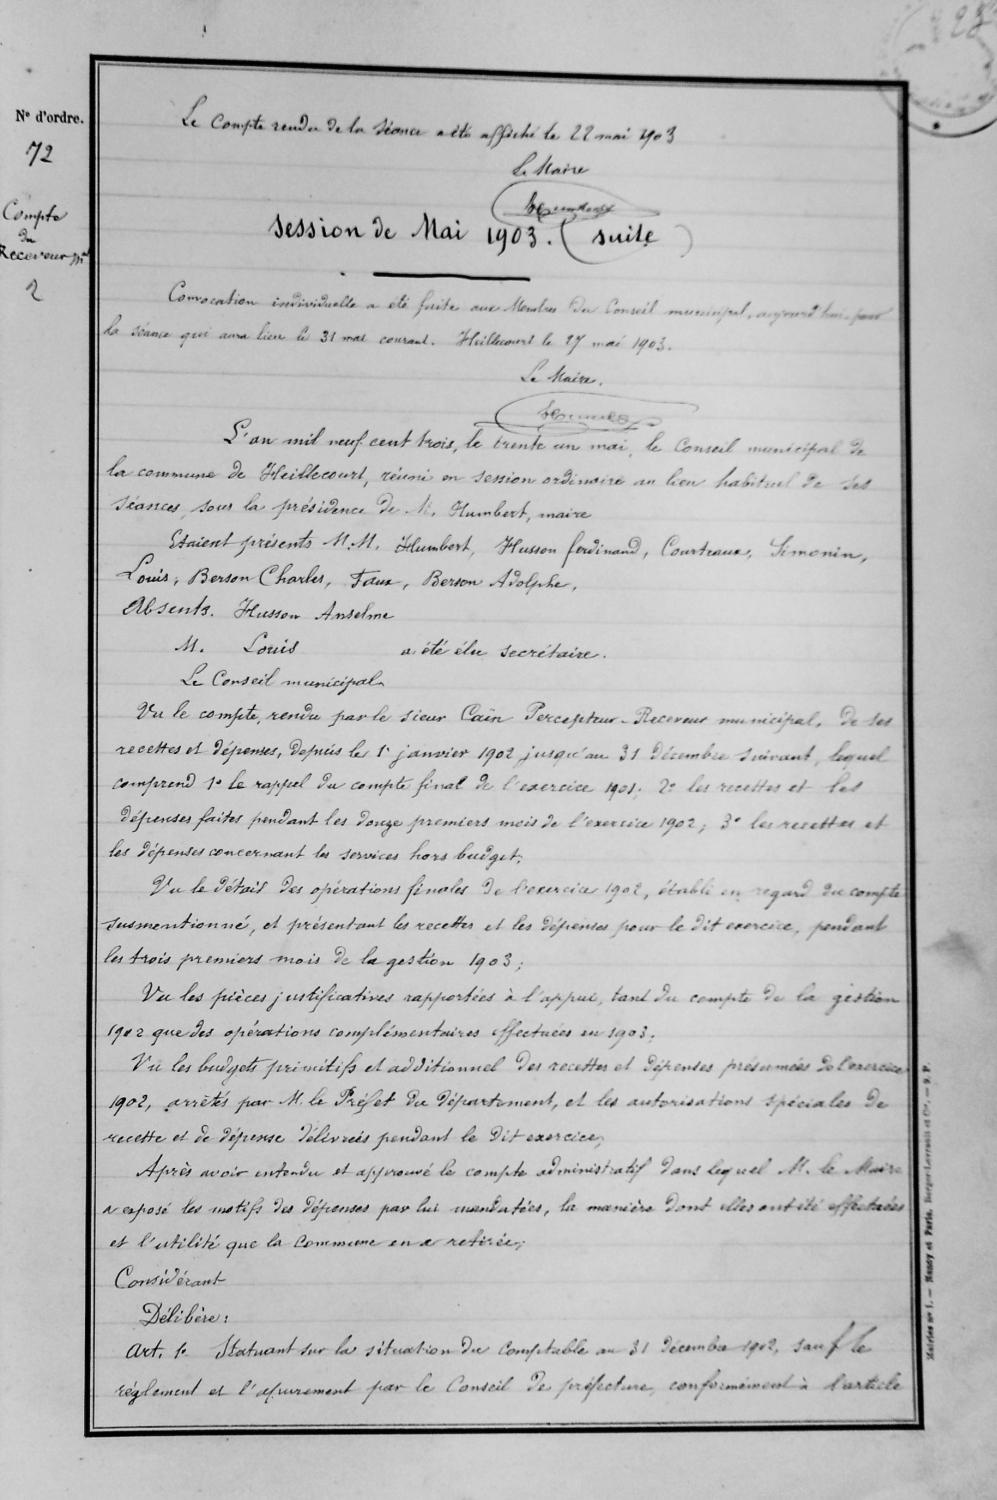 N° d'ordre.
72
Compte
du
Receveur Mal
2
Le Compte rendu de la séance a été affiché le 22 mai 1903
Le Maire
session de Mai 1903. (suite)
Convocation individuelle a été faite aux Membres du Conseil municipal, aujourd'hui pour
la séance qui aura lieu le 31 mai courant. Heillecourt le 27 mai 1903.
Le Maire.
L'an mil neuf cent trois, le trente un mai, le Conseil municipal de
la commune de Heillecourt, réuni en session ordinaire au lieu habituel de ses
séances, sous la présidence de M. Humbert, maire
Etaient présents M.M. Humbert, Husson ferdinand, Courteaux, Simonin,
Louis, Berson Charles, Faux, Berson Adolphe,
Absents. Husson Anselme
M. Louis a été élu secrétaire.
Le Conseil municipal
Vu le compte, rendu par le sieur Caïn Percepteur-Receveur municipal, de ses
recettes et dépenses, depuis le 1r janvier 1902 jusqu'au 31 décembre suivant, lequel
comprend 1° le rappel du compte final de l'exercice 1901; 2° les recettes et les
dépenses faites pendant les douze premiers mois de l'exercice 1902; 3° les recettes et
les dépenses concernant les services hors budget;
Vu le détail des opérations finales de l'exercice 1902, établi en regard du compte
susmentionné, et présentant les recettes et les dépenses pour le dit exercice, pendant
les trois premiers mois de la gestion 1903;
Vu les pièces justificatives rapportées à l'appui, tant du compte de la gestion
1902 que des opérations complémentaires effectuées en 1903;
Vu les budgets primitifs et additionnel des recettes et dépenses présumées de l'exercice
1902, arrêtés par M. le Préfet du Département, et les autorisations spéciales de
recette et de dépense délivrées pendant le dit exercice;
Après avoir entendu et approuvé le compte administratif dans lequel M. le Maire
a exposé les motifs des dépenses par lui mandatées, la manière dont elles ont été effectuées
et l'utilité que la Commune en a retirée;
Considérant
Délibère:
Art. 1r Statuant sur la situation du Comptable au 31 décembre 1902, sauf le
règlement et l'apurement par le Conseil de préfecture, conformément à l'article
Mairies n° 1. — Nancy et Paris. Berger-Levrault et Cie. — 9. P.